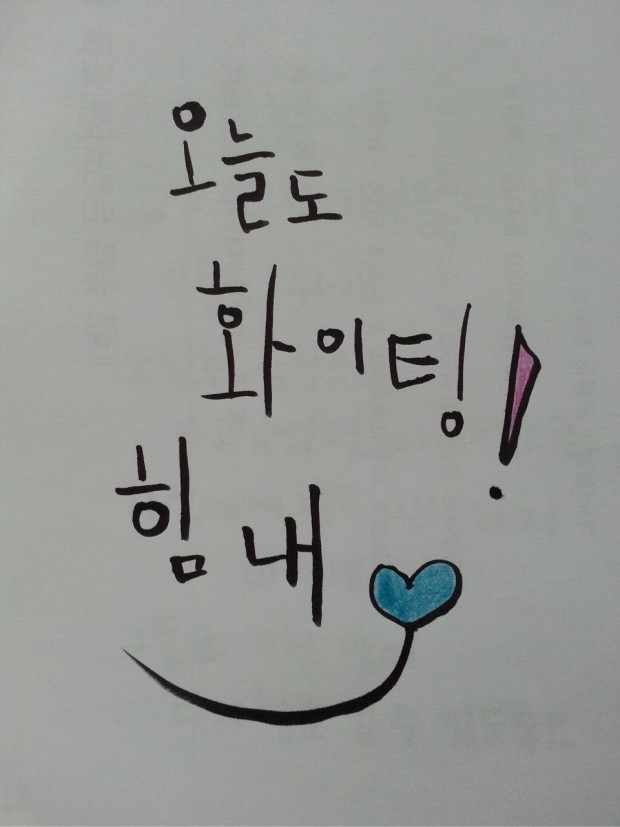 오늘도
화이팅!
힘내